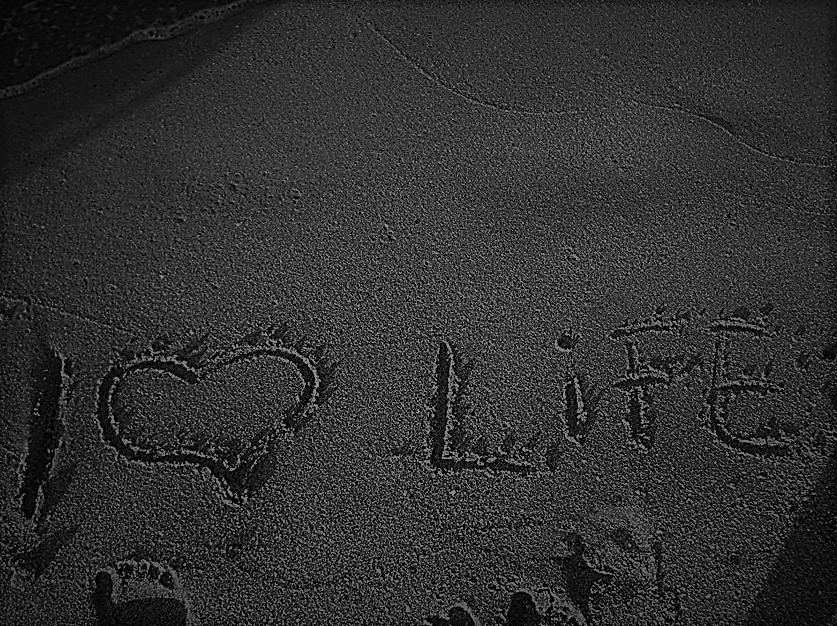 I ♡ LiFE